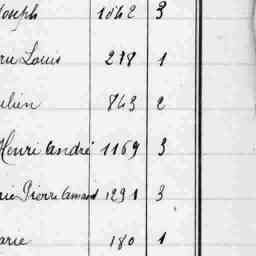 Joseph 1062 3
Louis 278 1
Julien 863 2
Henri André 1169 3
Pierre Armand 1291 3
Marie 180 1